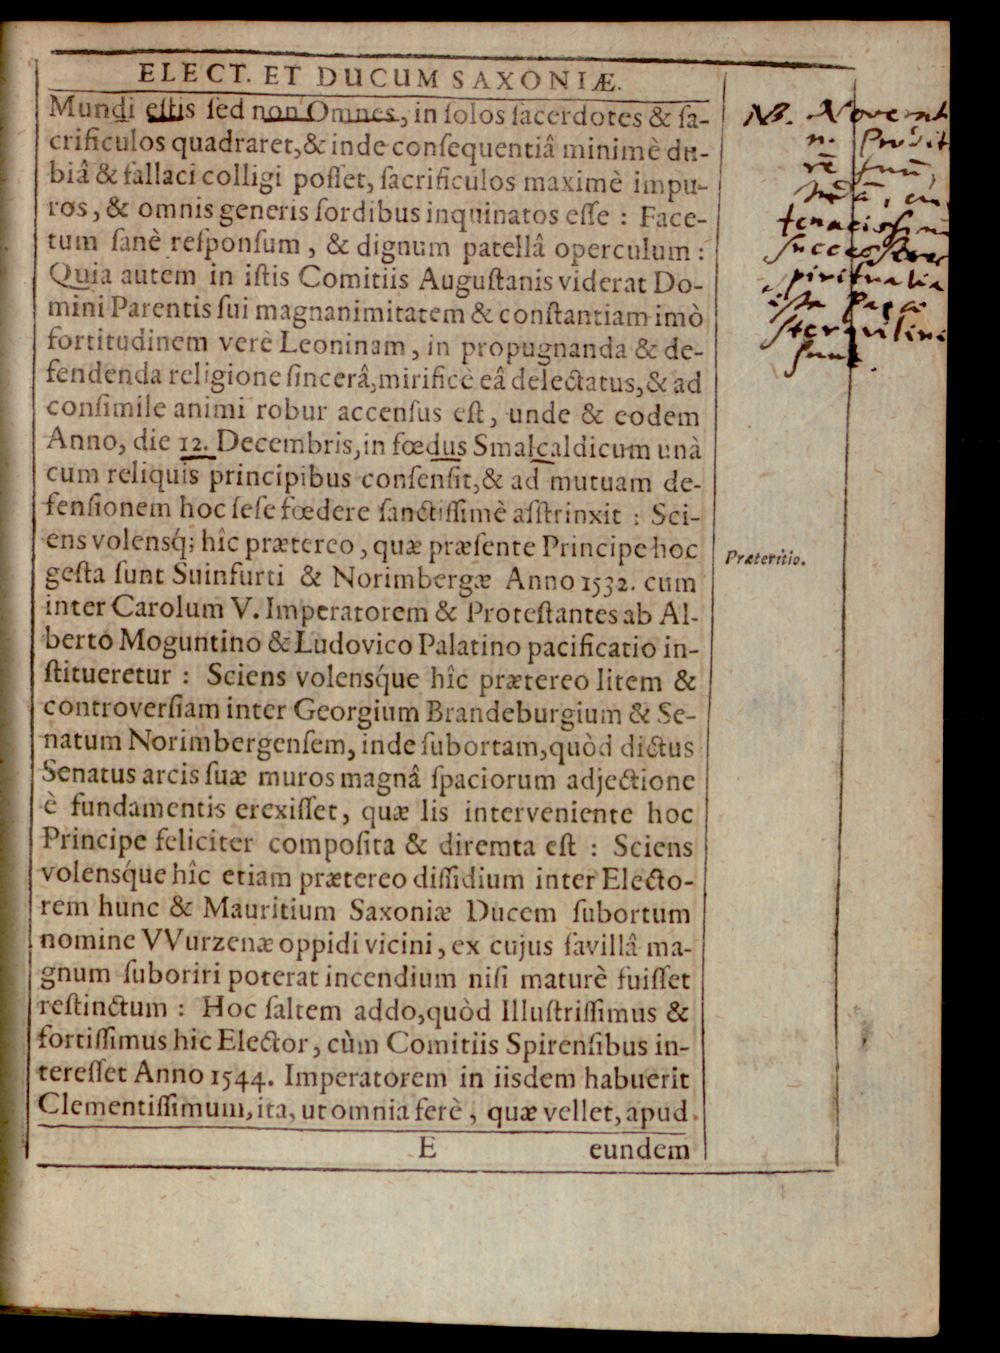 ELECT. ET DUCUM SAXONIÆ.
Mundi eſtis ſed non Omnes, in ſolos ſacerdotes & ſa-
crificulos quadraret, & inde conſequentiâ minimè du-
biâ & fallaci colligi poſſet, ſacrificulos maximè impu-
ros, & omnis generis ſordibus inquinatos eſſe : Face-
tum ſanè reſponſum, & dignum patellâ operculum :
Quia autem in iſtis Comitiis Auguſtanis viderat Do-
mini Parentis ſui magnanimitatem & conſtantiam imò
fortitudinem verè Leoninam, in propugnanda & de-
fendenda religione ſincerâ, mirificè eâ delectatus, & ad
conſimile animi robur accenſus eſt, unde & eodem
Anno, die 12. Decembris, in fœdus Smalcaldicum unà
cum reliquis principibus conſenſit, & ad mutuam de-
fenſionem hoc ſeſe fœdere ſanctiſſimè aſſtrinxit : Sci-
ens volensq́; hîc prætereo, quæ præſente Principe hoc
geſta ſunt Suinfurti & Norimbergæ Anno 1532. cum
inter Carolum V. Imperatorem & Proteſtantes ab Al-
berto Moguntino & Ludovico Palatino pacificatio in-
ſtitueretur : Sciens volensq́ue hîc prætereo litem &
controverſiam inter Georgium Brandeburgium & Se-
natum Norimbergenſem, inde ſubortam, quòd dictus
Senatus arcis ſuæ muros magnâ ſpaciorum adjectione
è fundamentis erexiſſet, quæ lis interveniente hoc
Principe feliciter compoſita & diremta eſt : Sciens
volensq́ue hîc etiam prætereo diſſidium inter Electo-
rem hunc & Mauritium Saxoniæ Ducem ſubortum
nomine VVurzenæ oppidi vicini, ex cujus favillâ ma-
gnum ſuboriri poterat incendium niſi maturè fuiſſet
reſtinctum : Hoc ſaltem addo, quòd Illuſtriſſimus &
fortiſſimus hic Elector, cùm Comitiis Spirenſibus in-
tereſſet Anno 1544. Imperatorem in iisdem habuerit
Clementiſſimum, ita, ut omnia ferè, quæ vellet, apud
E
eundem
NB.
tenacissim
successores
spiritualia
ista
sunt.
Præteritio.